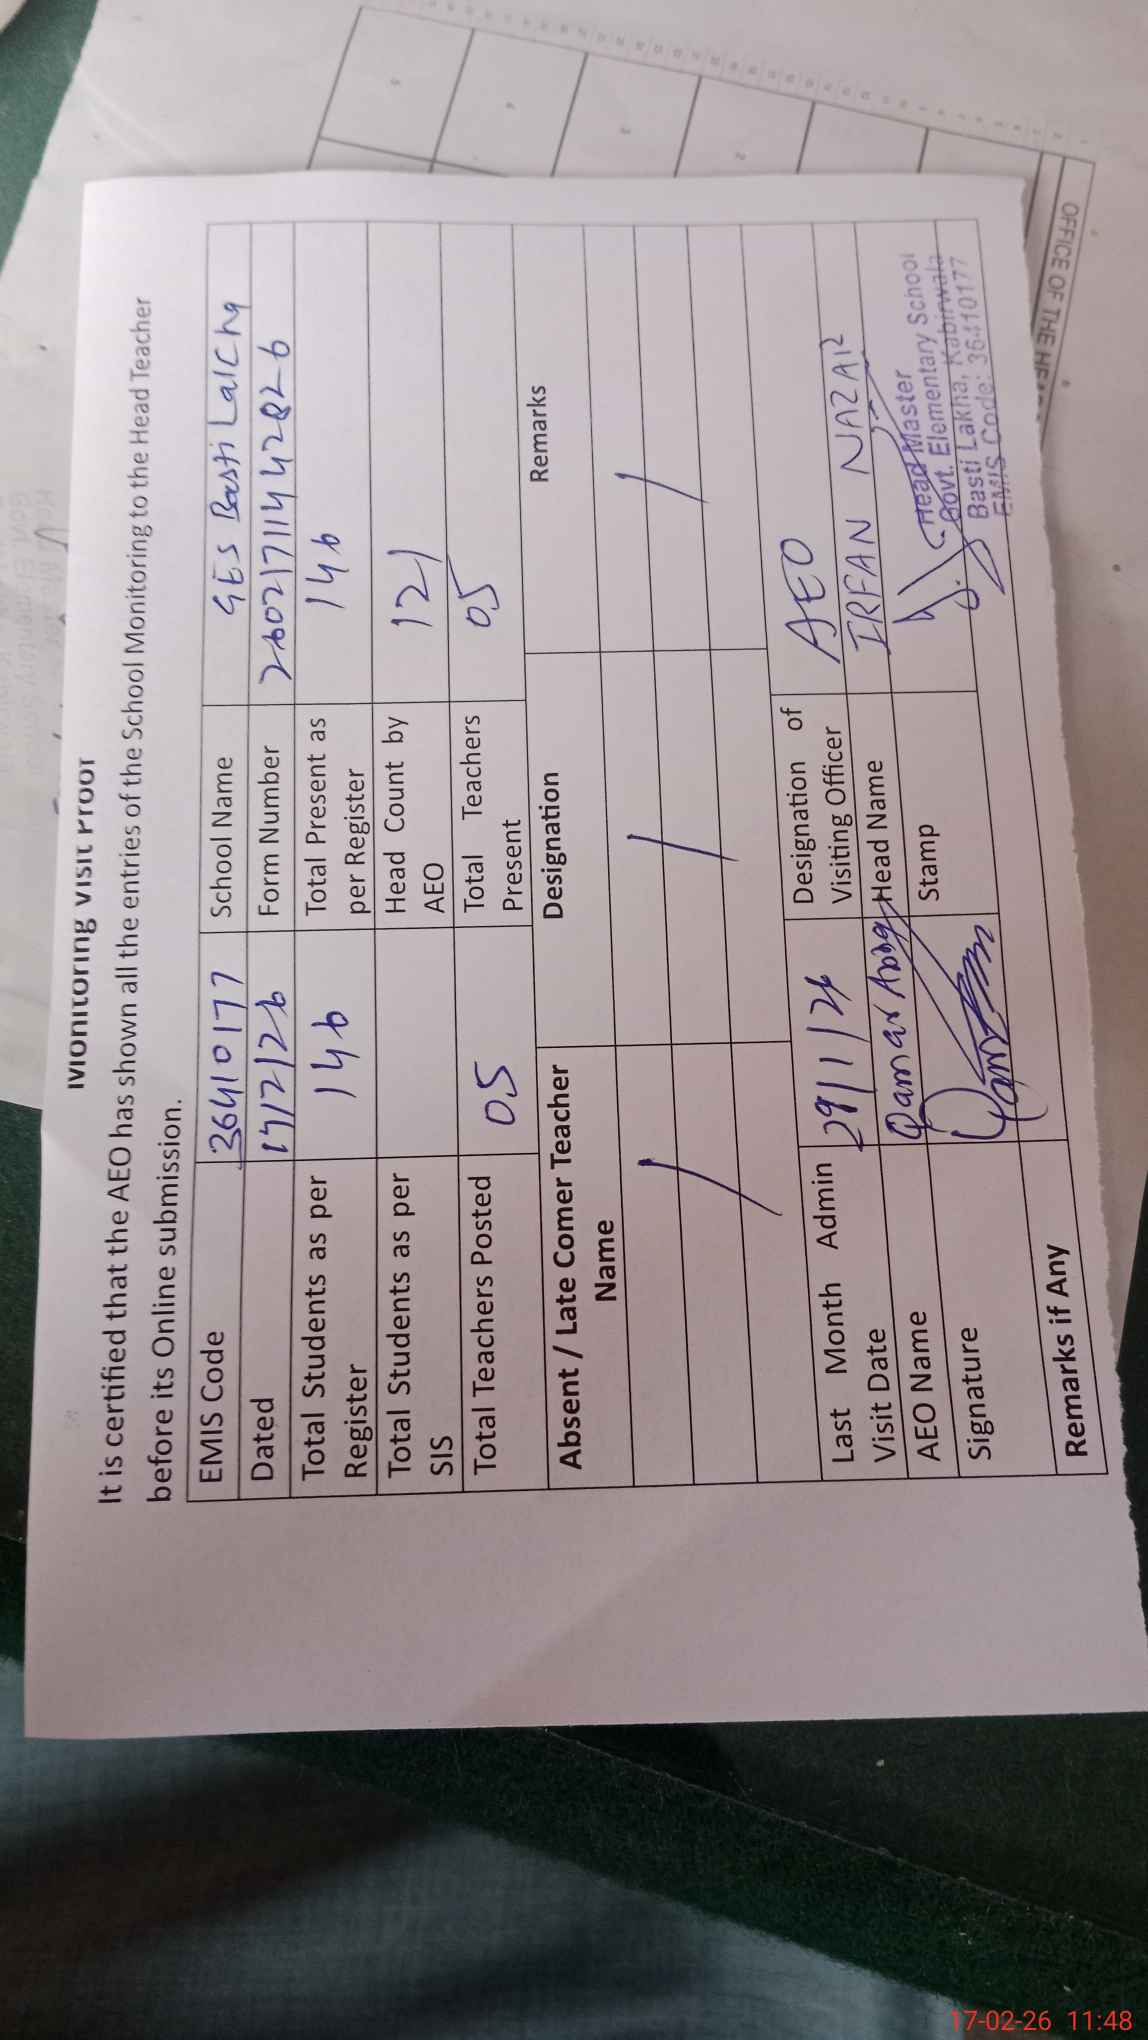 Monitoring Visit Proof
It is certified that the AEO has shown all the entries of the School Monitoring to the Head Teacher
before its Online submission.
EMIS Code 36410177 School Name GES Basti Lakha
Dated 17/2/26 Form Number
Total Students as per Register 146 Total Present as per Register 146
Total Students as per SIS Head Count by AEO 121
Total Teachers Posted 05 Total Teachers Present 05
Absent / Late Comer Teacher Name Designation Remarks
Last Month Admin Visit Date 29/1/26 Designation of Visiting Officer AEO
AEO Name Qamar Head Name IRFAN NAZAR
Signature Stamp
Head Master
Govt. Elementary School
Basti Lakha, Kabirwala
EMIS Code: 36410177
Remarks if Any
OFFICE OF THE HEAD
17-02-26 11:48